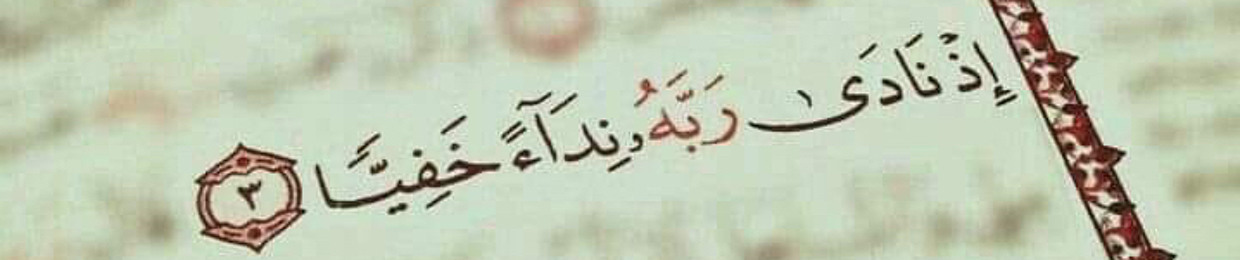 إِذۡ نَادَىٰ رَبَّهُۥ نِدَآءً خَفِيّٗا ٣